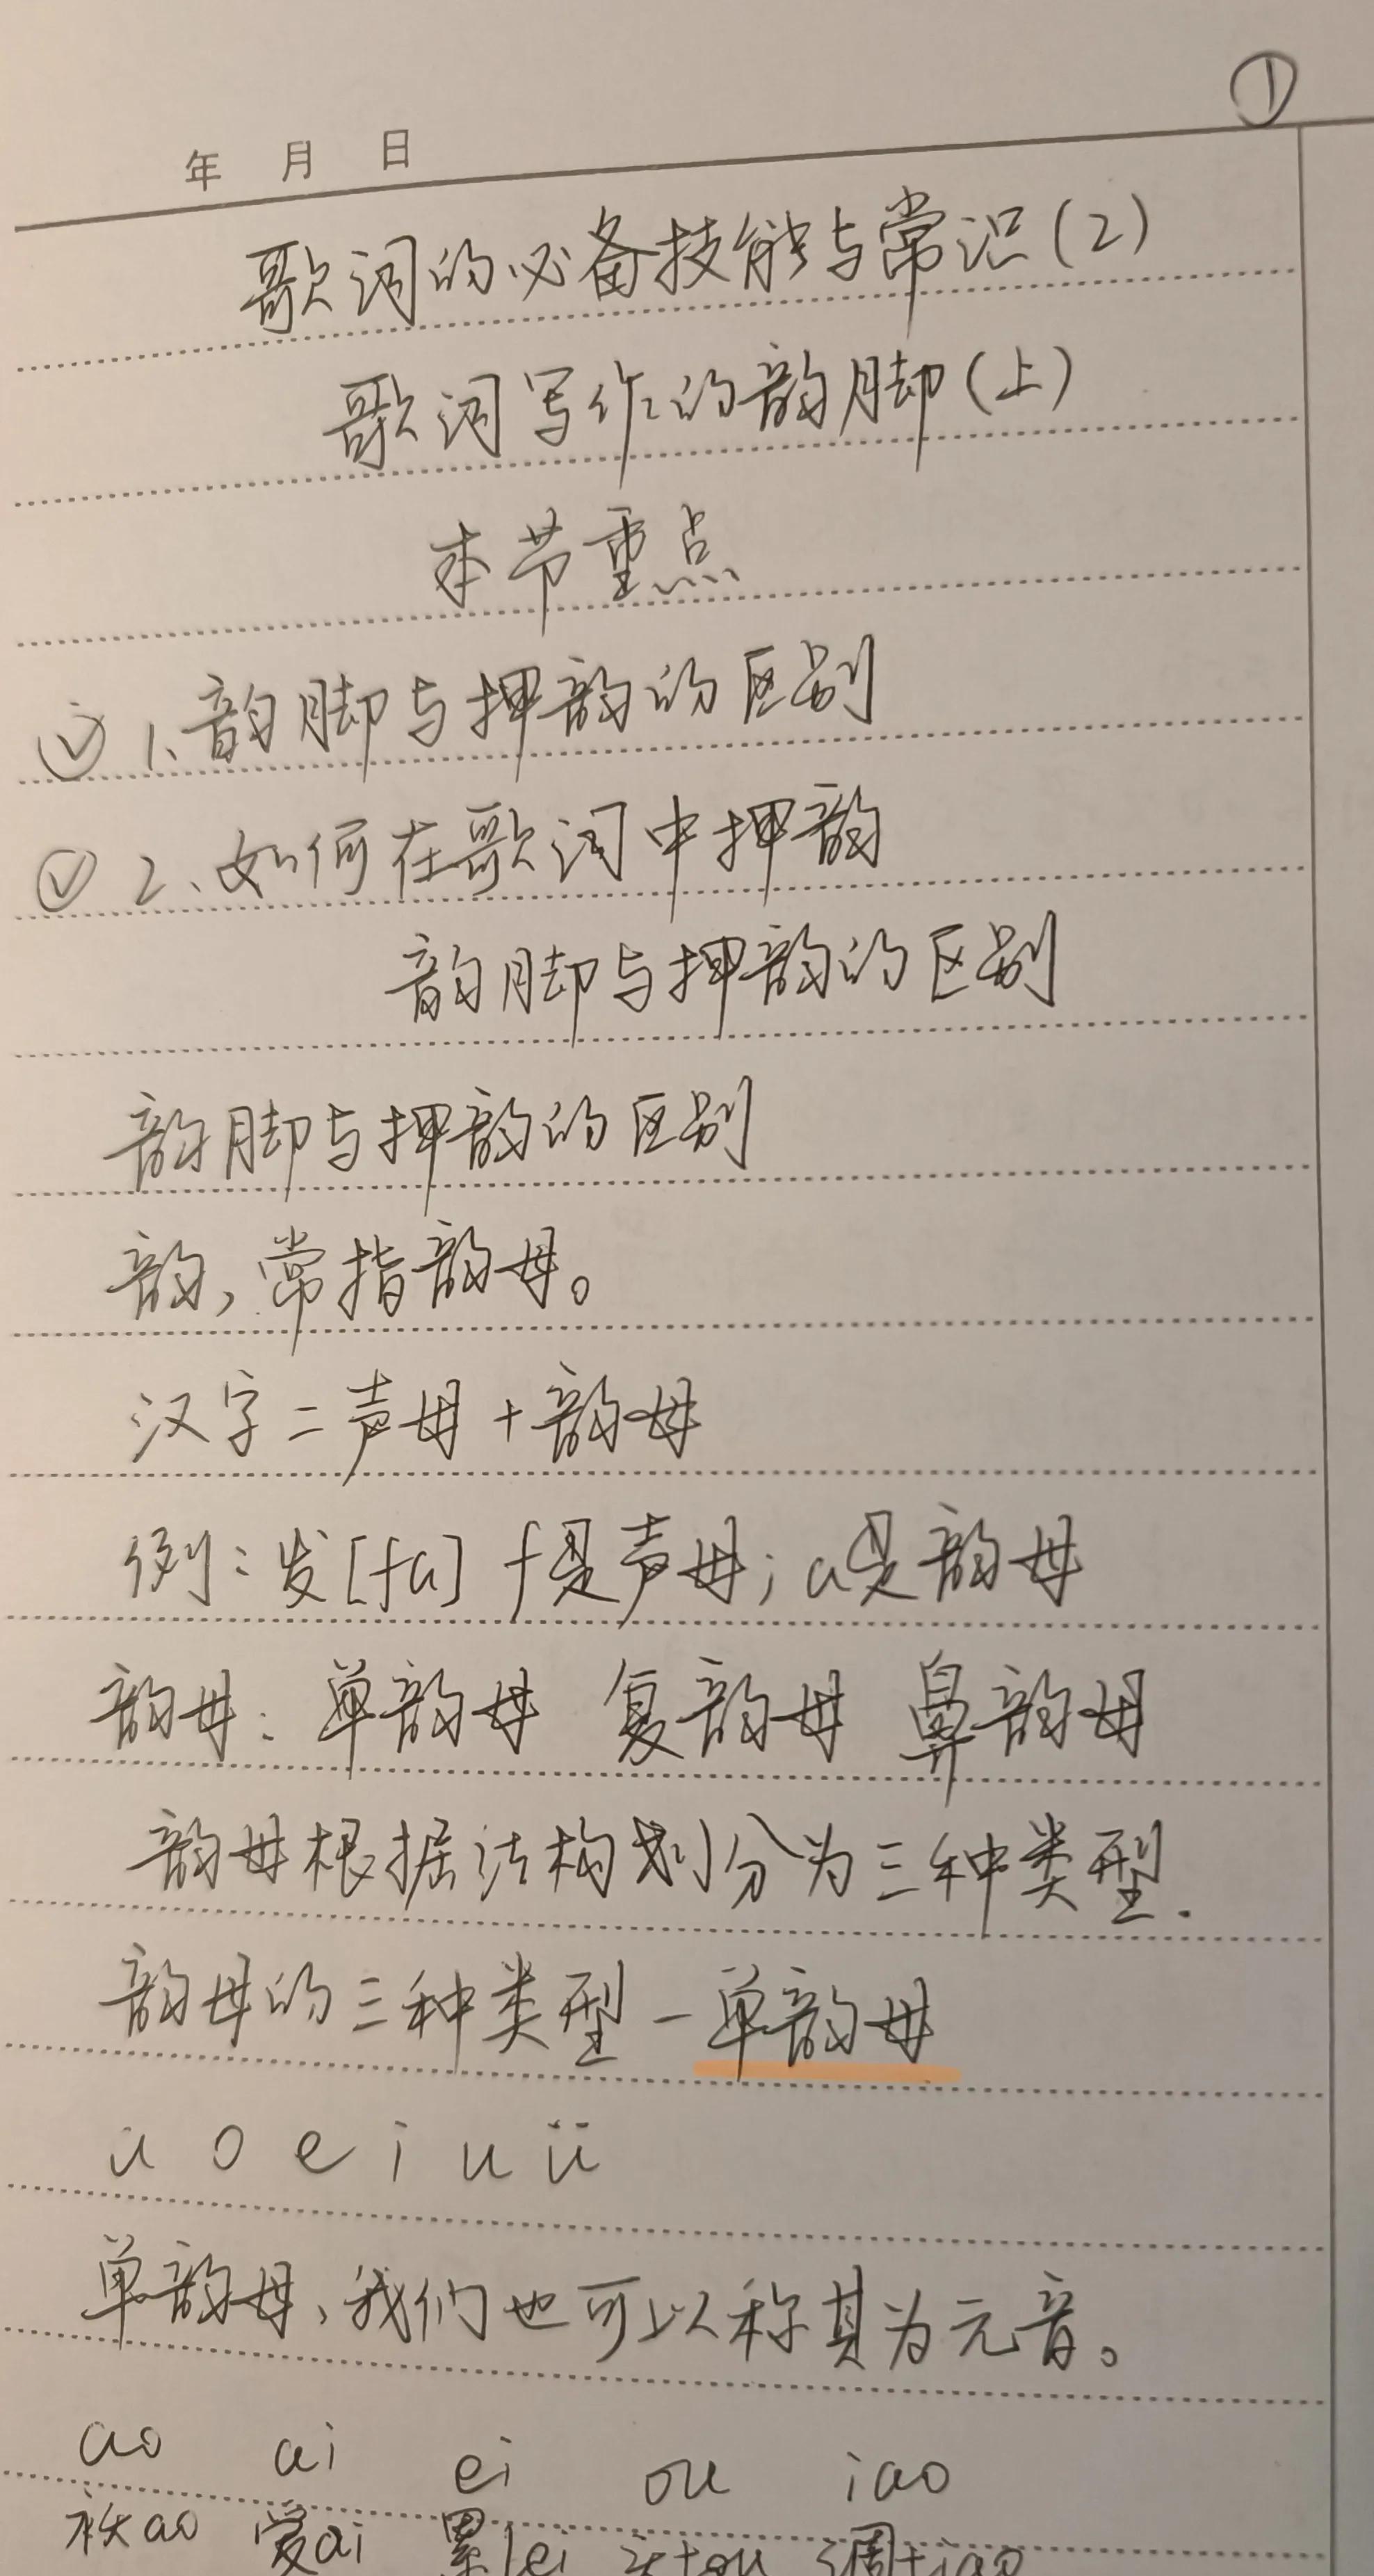 ①
年 月 日
歌词的必备技能与常识(2)
歌词写作的韵脚(上)
本节重点
1、韵脚与押韵的区别
2、如何在歌词中押韵
韵脚与押韵的区别
韵脚与押韵的区别
韵,常指韵母。
汉字=声母+韵母
例:发[fa] f是声母;a是韵母
韵母:单韵母 复韵母 鼻韵母
韵母根据结构划分为三种类型.
韵母的三种类型-单韵母
a o e i u ü
单韵母,我们也可以称其为元音。
ao ai ei ou iao
袄ao 爱ai 累lei tou 调tiao